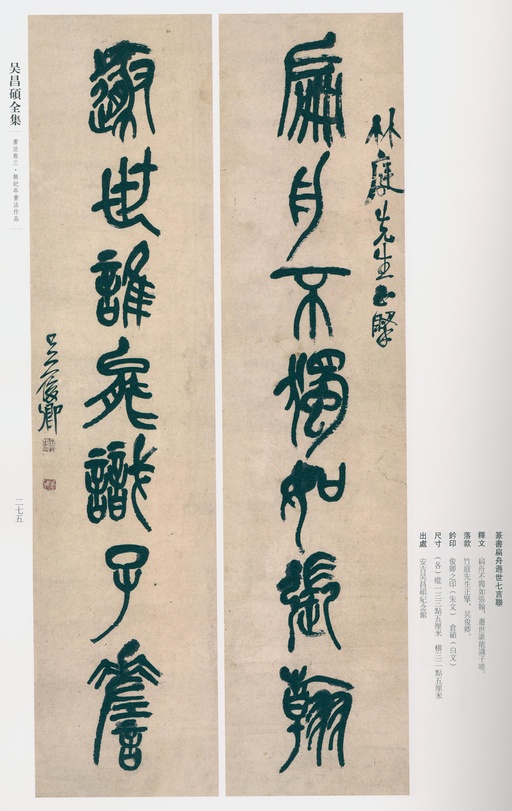 篆書扁舟遯世七言聯
釋文 扁舟不獨如張翰，遯世誰能識子
落款 竹庭先生正擘。吴俊卿。
鈐印 俊卿之印（朱文） 倉碩（白文）
尺寸 （各）縱一三三點五厘米 橫三二點五厘米
出處 安吉吴昌碩紀念館
竹庭先生正擘
扁舟不獨如張翰
遯世誰能識子詹
吴俊卿
吴昌碩全集
書法卷三·無紀年書法作品
二七五